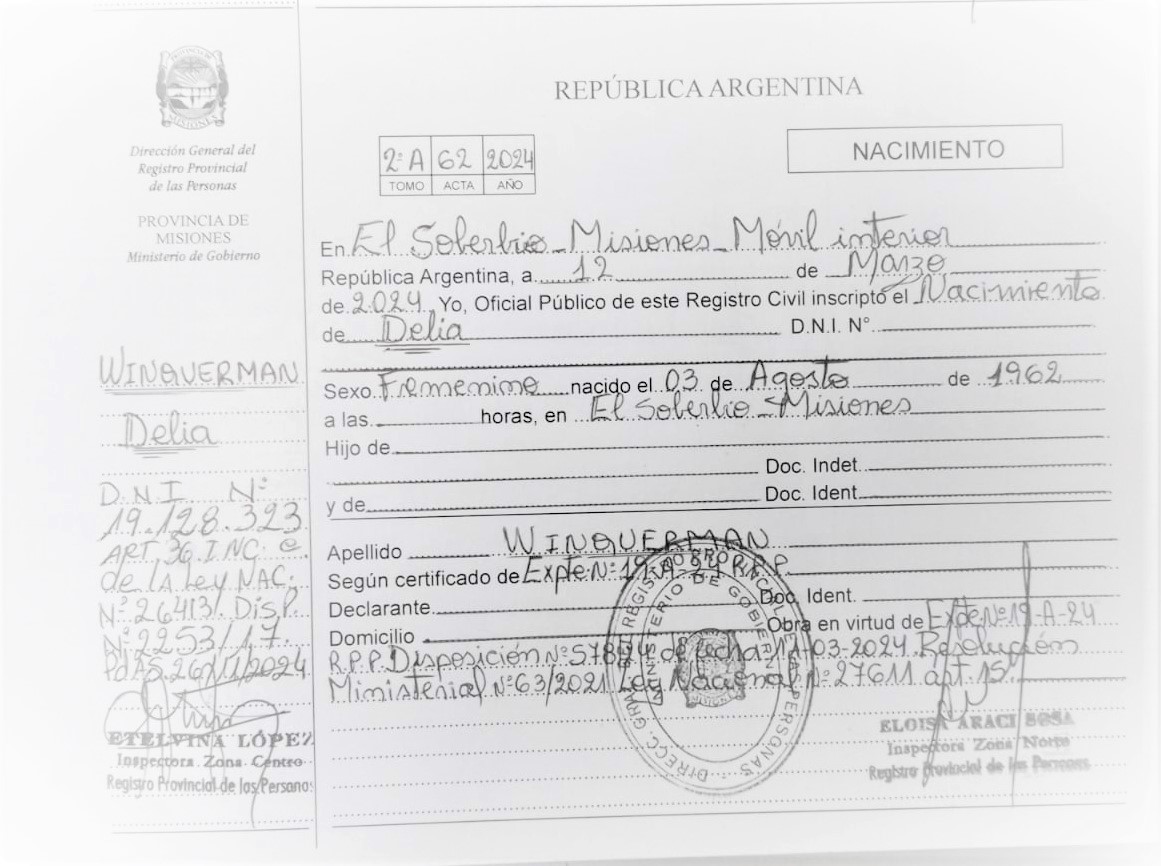 PROVINCIA DE
MISIONES
Dirección General del
Registro Provincial
de las Personas
PROVINCIA DE
MISIONES
Ministerio de Gobierno
WINGUERMAN
Delia
D.N.I N°
19.128.323
ART. 36. INC. c
de la Ley NAC.
N° 26413/. Disp.
N° 2253/17.
26/11/2024
ETELVINA LÓPEZ
Inspectora Zona Centro
Registro Provincial de las Personas
REPÚBLICA ARGENTINA
2° A 62 2024
TOMO ACTA AÑO
NACIMIENTO
En El Soberbio - Misiones - Móvil interior
República Argentina, a 12 de Marzo
de 2024 Yo, Oficial Público de este Registro Civil inscripto el Nacimiento
de Delia D.N.I. N°
Sexo Femenino nacido el 03 de Agosto de 1962
a las horas, en El Soberbio - Misiones
Hijo de
Doc. Indet.
y de Doc. Ident.
Apellido WINGUERMAN
Según certificado de Expte N° 19-A-24 R.P.P.
Declarante Doc. Ident.
Domicilio Obra en virtud de Expte N° 19-A-24
R.P.P. Disposición N° 578/24 de fecha 11-03-2024. Resolución
Ministerial N° 63/2021 Ley Nacional N° 27611 art. 15
DIRECC. GRAL. DEL REGISTRO PROVINCIAL DE LAS PERSONAS
MINISTERIO DE GOBIERNO
ELOISA ARACI SOSA
Inspectora Zona Norte
Registro Provincial de las Personas